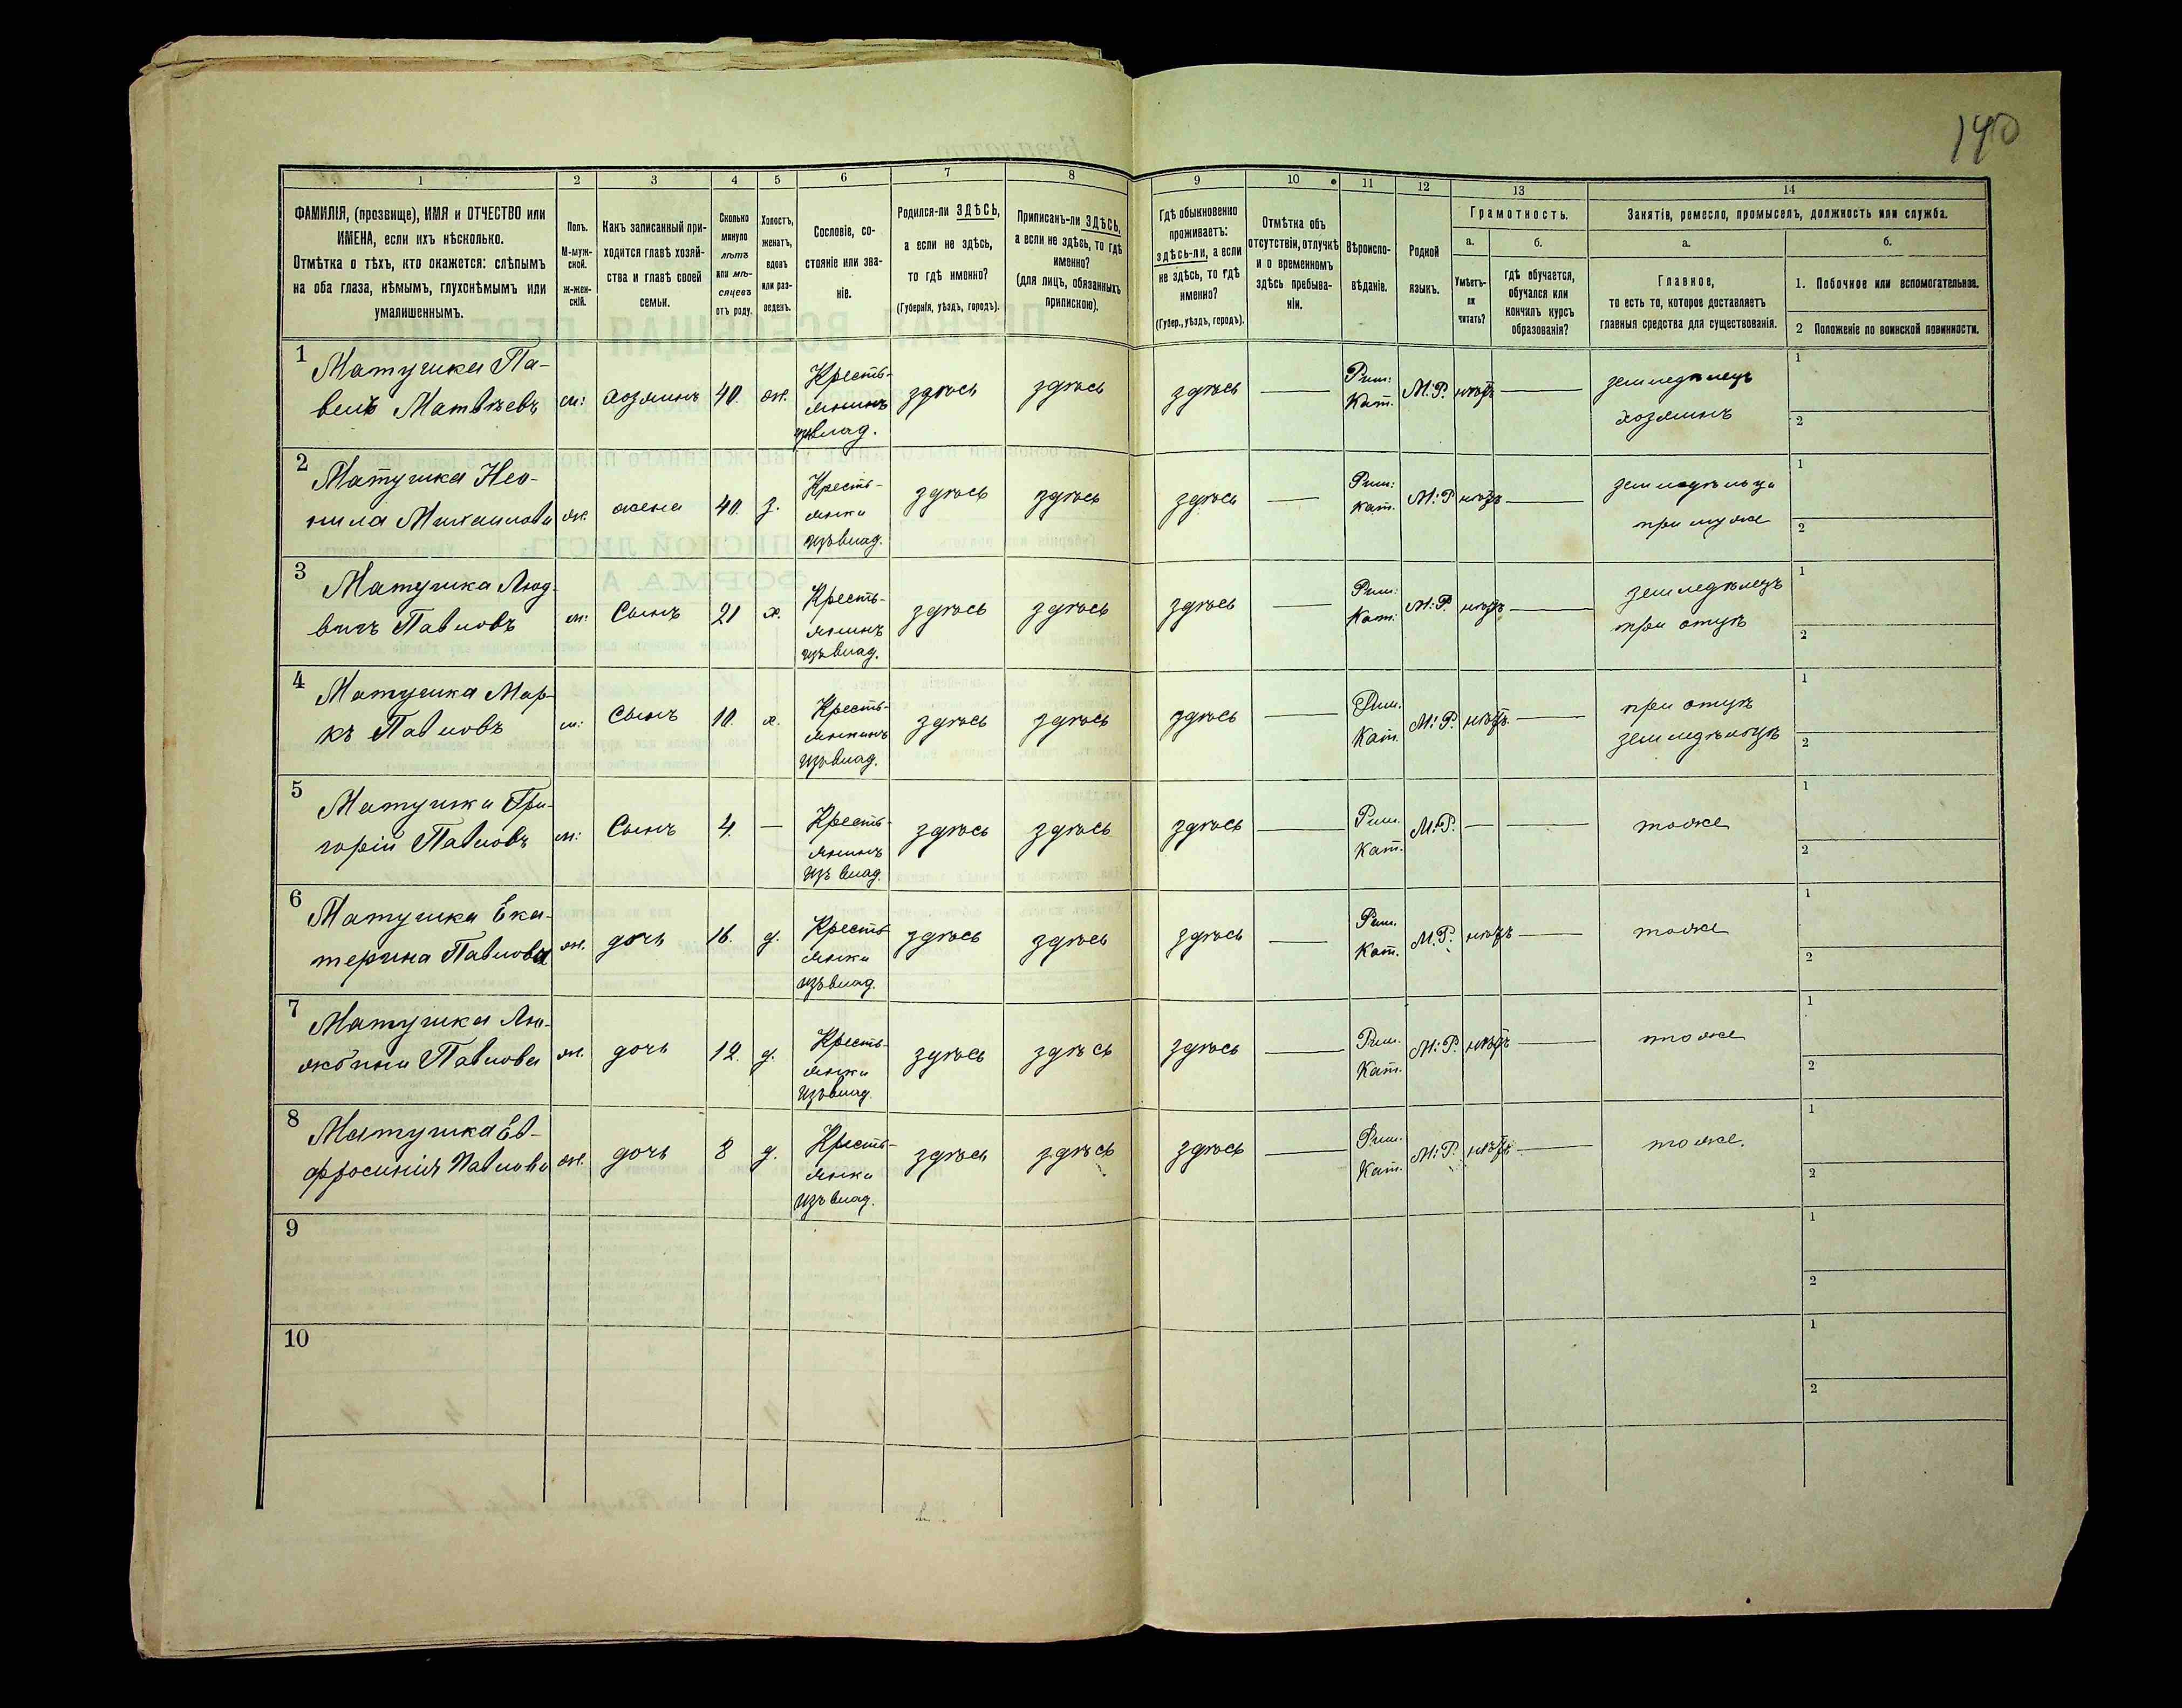 190
1 2 3 4 5 6 7 8 9 10 11 12 13 14
ФАМИЛІЯ, (прозвище), ИМЯ и ОТЧЕСТВО или
ИМЕНА, если ихъ нѣсколько.
Отмѣтка о тѣхъ, кто окажется: слѣпымъ
на оба глаза, нѣмымъ, глухонѣмымъ или
умалишеннымъ.
Полъ.
М-муж-
ской.
Ж-жен-
скій.
Какъ записанный при-
ходится главѣ хозяй-
ства и главѣ своей
семьи.
Сколько
минуло
лѣтъ
или мѣ-
сяцевъ
отъ роду.
Холостъ,
женатъ,
вдовъ
или раз-
веденъ.
Сословіе, со-
стояніе или зва-
ніе.
Родился-ли ЗДѢСЬ,
а если не здѣсь,
то гдѣ именно?
(Губернія, уѣздъ, городъ).
Приписанъ-ли ЗДѢСЬ,
а если не здѣсь, то гдѣ
именно?
(для лицъ, обязанныхъ
припискою).
Гдѣ обыкновенно
проживаетъ:
здѣсь-ли, а если
не здѣсь, то гдѣ
именно?
(Губер., уѣздъ, городъ).
Отмѣтка объ
отсутствіи, отлучкѣ
и о временномъ
здѣсь пребыва-
ніи.
Вѣроиспо-
вѣданіе.
Родной
языкъ.
Грамотность.
а. б.
Умѣетъ-
ли
читать?
Гдѣ обучается,
обучался или
кончилъ курсъ
образованія?
Занятіе, ремесло, промыселъ, должность или служба.
а. б.
Главное,
то есть то, которое доставляетъ
главныя средства для существованія.
1. Побочное или вспомогательное.
2 Положеніе по воинской повинности.
1 Матушка Па-
велъ Матвѣевъ м: хозяинъ 40. ж. Кресть-
янинъ
изъвлад. здѣсь здѣсь здѣсь — Рим:
Кат. М:Р. нѣтъ — земледѣлецъ
хозяинъ 1
2
2 Матушка Нео-
нила Михаилова ж. жена 40. з. Кресть-
янка
изъвлад. здѣсь здѣсь здѣсь — Рим:
Кат. М:Р нѣтъ — земледѣльца
при мужѣ 1
2
3 Матушка Люд-
вигъ Павловъ м: Сынъ 21 х. Кресть-
янинъ
изъвлад. здѣсь здѣсь здѣсь — Рим:
Кат: М:Р. нѣтъ — земледѣлецъ
при отцѣ 1
2
4 Матушка Мар-
къ Павловъ м: Сынъ 10. х. Кресть-
янинъ
изъвлад. здѣсь здѣсь здѣсь — Рим.
Кат. М:Р. нѣтъ. — при отцѣ
земледѣльцѣ 1
2
5 Матушка Гри-
горій Павловъ м: Сынъ 4. — Кресть-
янинъ
изъ влад. здѣсь здѣсь здѣсь — Рим.
Кат. М:Р. — — тоже 1
2
6 Матушка Ека-
терина Павлова ж. дочь 16. д. Кресть-
янка
изъвлад. здѣсь здѣсь здѣсь — Рим.
Кат. М.Р. нѣтъ — тоже 1
2
7 Матушка
Павлова ж. дочь 12. д. Кресть-
янка
изъвлад. здѣсь здѣсь здѣсь — Рим.
Кат. М:Р. нѣтъ — тоже 1
2
8 Матушка Ев-
фросинія Павлова ж. дочь 8 д. Кресть-
янка
изъ влад. здѣсь здѣсь здѣсь — Рим.
Кат. М:Р. нѣтъ — тоже. 1
2
9 1
2
10 1
2